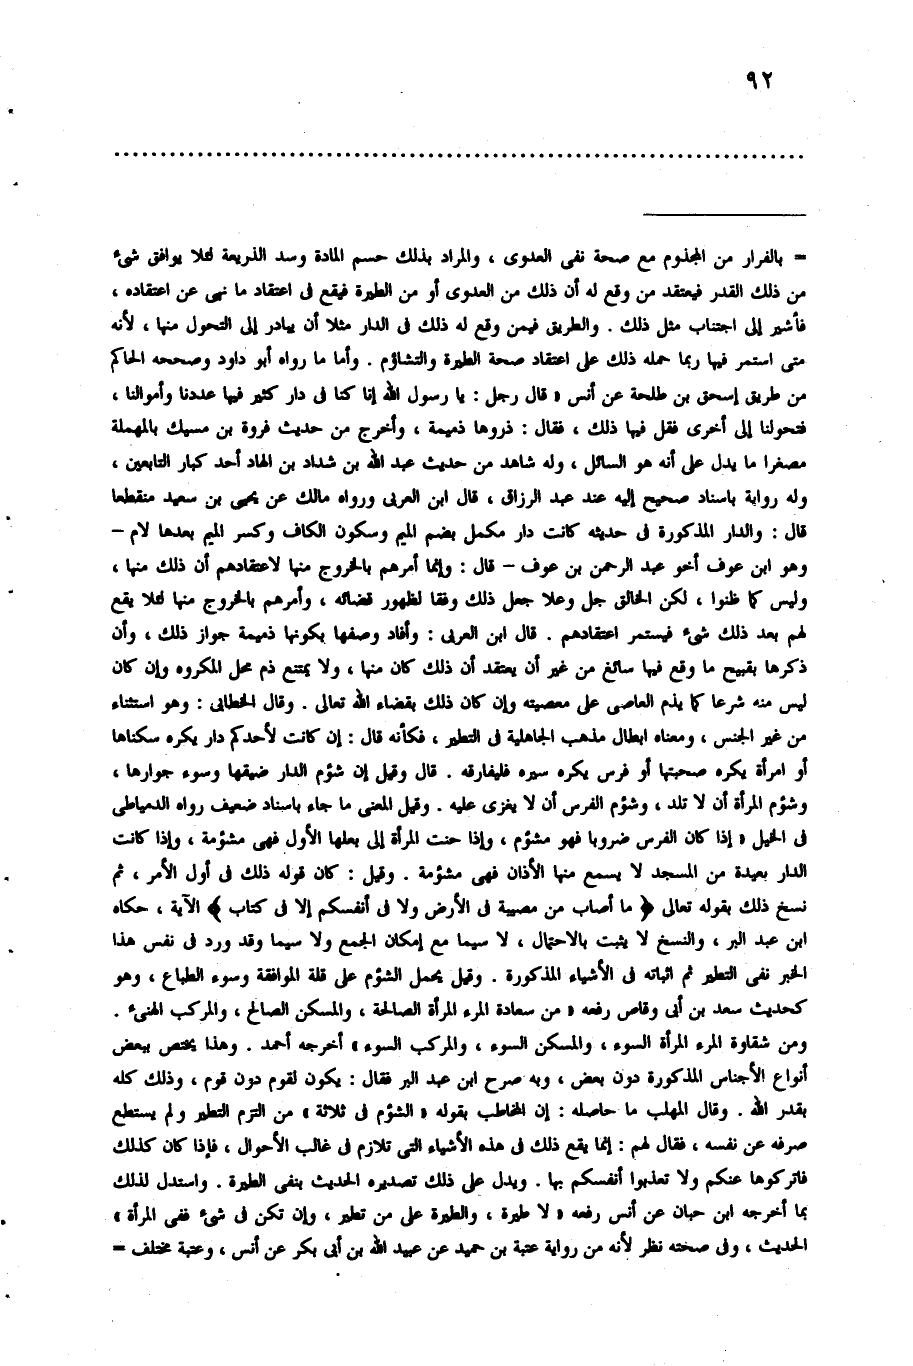 ٩٢
= بالفرار من المجذوم مع صحة نفى العدوى ، والمراد بذلك حسم المادة وسد الذريعة لئلا يوافق شىء
من ذلك القدر فيعتقد من وقع له أن ذلك من العدوى أو من الطيرة فيقع فى اعتقاد ما نهى عن اعتقاده ،
فأشير إلى اجتناب مثل ذلك . والطريق فيمن وقع له ذلك فى الدار مثلا أن يبادر إلى التحول منها ، لأنه
متى استمر فيها ربما حمله ذلك على اعتقاد صحة الطيرة والتشاؤم . وأما ما رواه أبو داود وصححه الحاكم
من طريق إسحق بن طلحة عن أنس « قال رجل : يا رسول الله إنا كنا فى دار كثير فيها عددنا وأموالنا ،
فتحولنا إلى أخرى فقل فيها ذلك ، فقال : ذروها ذميمة ، وأخرج من حديث فروة بن مسيك بالمهملة
مصغرا ما يدل على أنه هو السائل ، وله شاهد من حديث عبد الله بن شداد بن الهاد أحد كبار التابعين ،
وله رواية باسناد صحيح إليه عند عبد الرزاق ، قال ابن العربى ورواه مالك عن يحيى بن سعيد منقطعا
قال : والدار المذكورة فى حديثه كانت دار مكمل بضم الميم وسكون الكاف وكسر الميم بعدها لام –
وهو ابن عوف أخو عبد الرحمن بن عوف – قال : وإنما أمرهم بالخروج منها لاعتقادهم أن ذلك منها ،
وليس كما ظنوا ، لكن الخالق جل وعلا جعل ذلك وفقا لظهور قضائه ، وأمرهم بالخروج منها لئلا يقع
لهم بعد ذلك شىء فيستمر اعتقادهم . قال ابن العربى : وأفاد وصفها بكونها ذميمة جواز ذلك ، وأن
ذكرها بقبيح ما وقع فيها سائغ من غير أن يعتقد أن ذلك كان منها ، ولا يمتنع ذم محل المكروه وإن كان
ليس منه شرعا كما يذم العاصى على معصيته وإن كان ذلك بقضاء الله تعالى . وقال الخطابى : وهو استثناء
من غير الجنس ، ومعناه ابطال مذهب الجاهلية فى التطير ، فكأنه قال : إن كانت لأحدكم دار يكره سكناها
أو امرأة يكره صحبتها أو فرس يكره سيره فليفارقه . قال وقيل إن شؤم الدار ضيقها وسوء جوارها ،
وشؤم المرأة أن لا تلد ، وشؤم الفرس أن لا يغزى عليه . وقيل المعنى ما جاء باسناد ضعيف رواه الدمياطى
فى الخيل « إذا كان الفرس ضروبا فهو مشؤم ، وإذا حنت المرأة إلى بعلها الأول فهى مشؤمة ، وإذا كانت
الدار بعيدة من المسجد لا يسمع منها الأذان فهى مشؤمة . وقيل : كان قوله ذلك فى أول الأمر ، ثم
نسخ ذلك بقوله تعالى ﴿ ما أصاب من مصيبة فى الأرض ولا فى أنفسكم إلا فى كتاب ﴾ الآية ، حكاه
ابن عبد البر ، والنسخ لا يثبت بالاحتمال ، لا سيما مع إمكان الجمع ولا سيما وقد ورد فى نفس هذا
الخبر نفى التطير ثم اثباته فى الأشياء المذكورة . وقيل يحمل الشؤم على قلة الموافقة وسوء الطباع ، وهو
كحديث سعد بن أبى وقاص رفعه « من سعادة المرء المرأة الصالحة ، والمسكن الصالح ، والمركب الهنىء .
ومن شقاوة المرء المرأة السوء ، والمسكن السوء ، والمركب السوء » أخرجه أحمد . وهذا يختص ببعض
أنواع الأجناس المذكورة دون بعض ، وبه صرح ابن عبد البر فقال : يكون لقوم دون قوم ، وذلك كله
بقدر الله . وقال المهلب ما حاصله : إن المخاطب بقوله « الشؤم فى ثلاثة » من التزم التطير ولم يستطع
صرفه عن نفسه ، فقال لهم : إنما يقع ذلك فى هذه الأشياء التى تلازم فى غالب الأحوال ، فإذا كان كذلك
فاتركوها عنكم ولا تعذبوا أنفسكم بها . ويدل على ذلك تصديره الحديث بنفى الطيرة . واستدل لذلك
بما أخرجه ابن حبان عن أنس رفعه « لا طيرة ، والطيرة على من تطير ، وإن تكن فى شىء ففى المرأة »
الحديث ، وفى صحته نظر لأنه من رواية عتبة بن حميد عن عبيد الله بن أبى بكر عن أنس ، وعتبة مختلف =